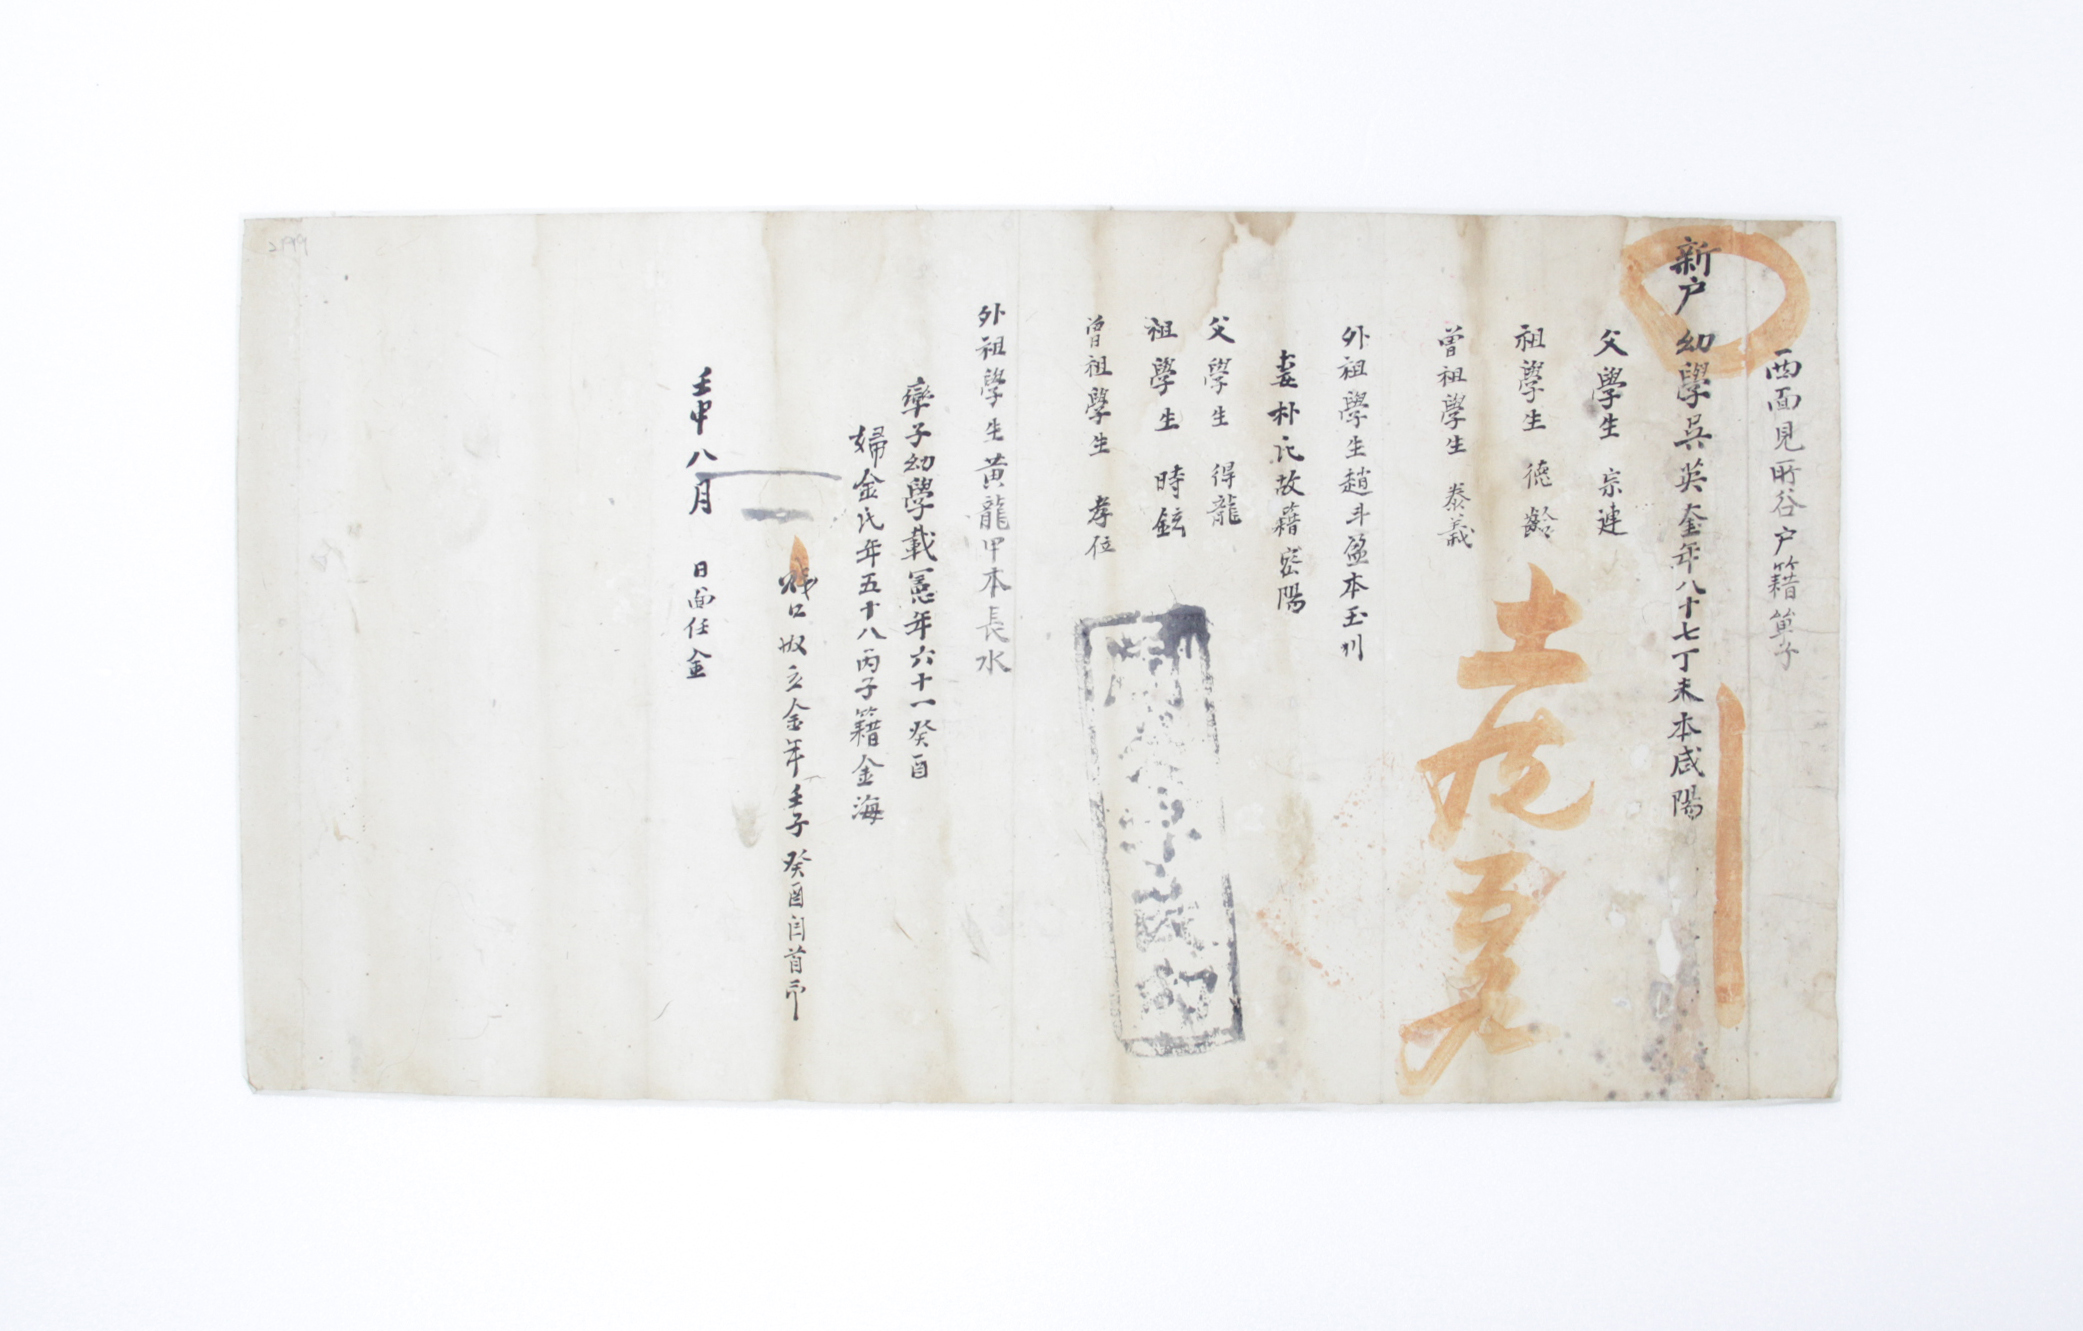 西面見所谷戶籍單子
新戶 幼學吳英奎年八十七丁未本咸陽
父學生 宗連
祖學生 德齡
曾祖學生 泰義
外祖學生趙斗盈本玉川
妻朴氏故籍密陽
父學生 得龍
祖學生 時鉉
曾祖學生 孝位
外祖學生黃龍甲本長水
率子幼學載憲年六十一癸酉
婦金氏年五十八丙子籍金海
賤口奴立金年壬子 癸酉
壬申八月 日面任金
2199